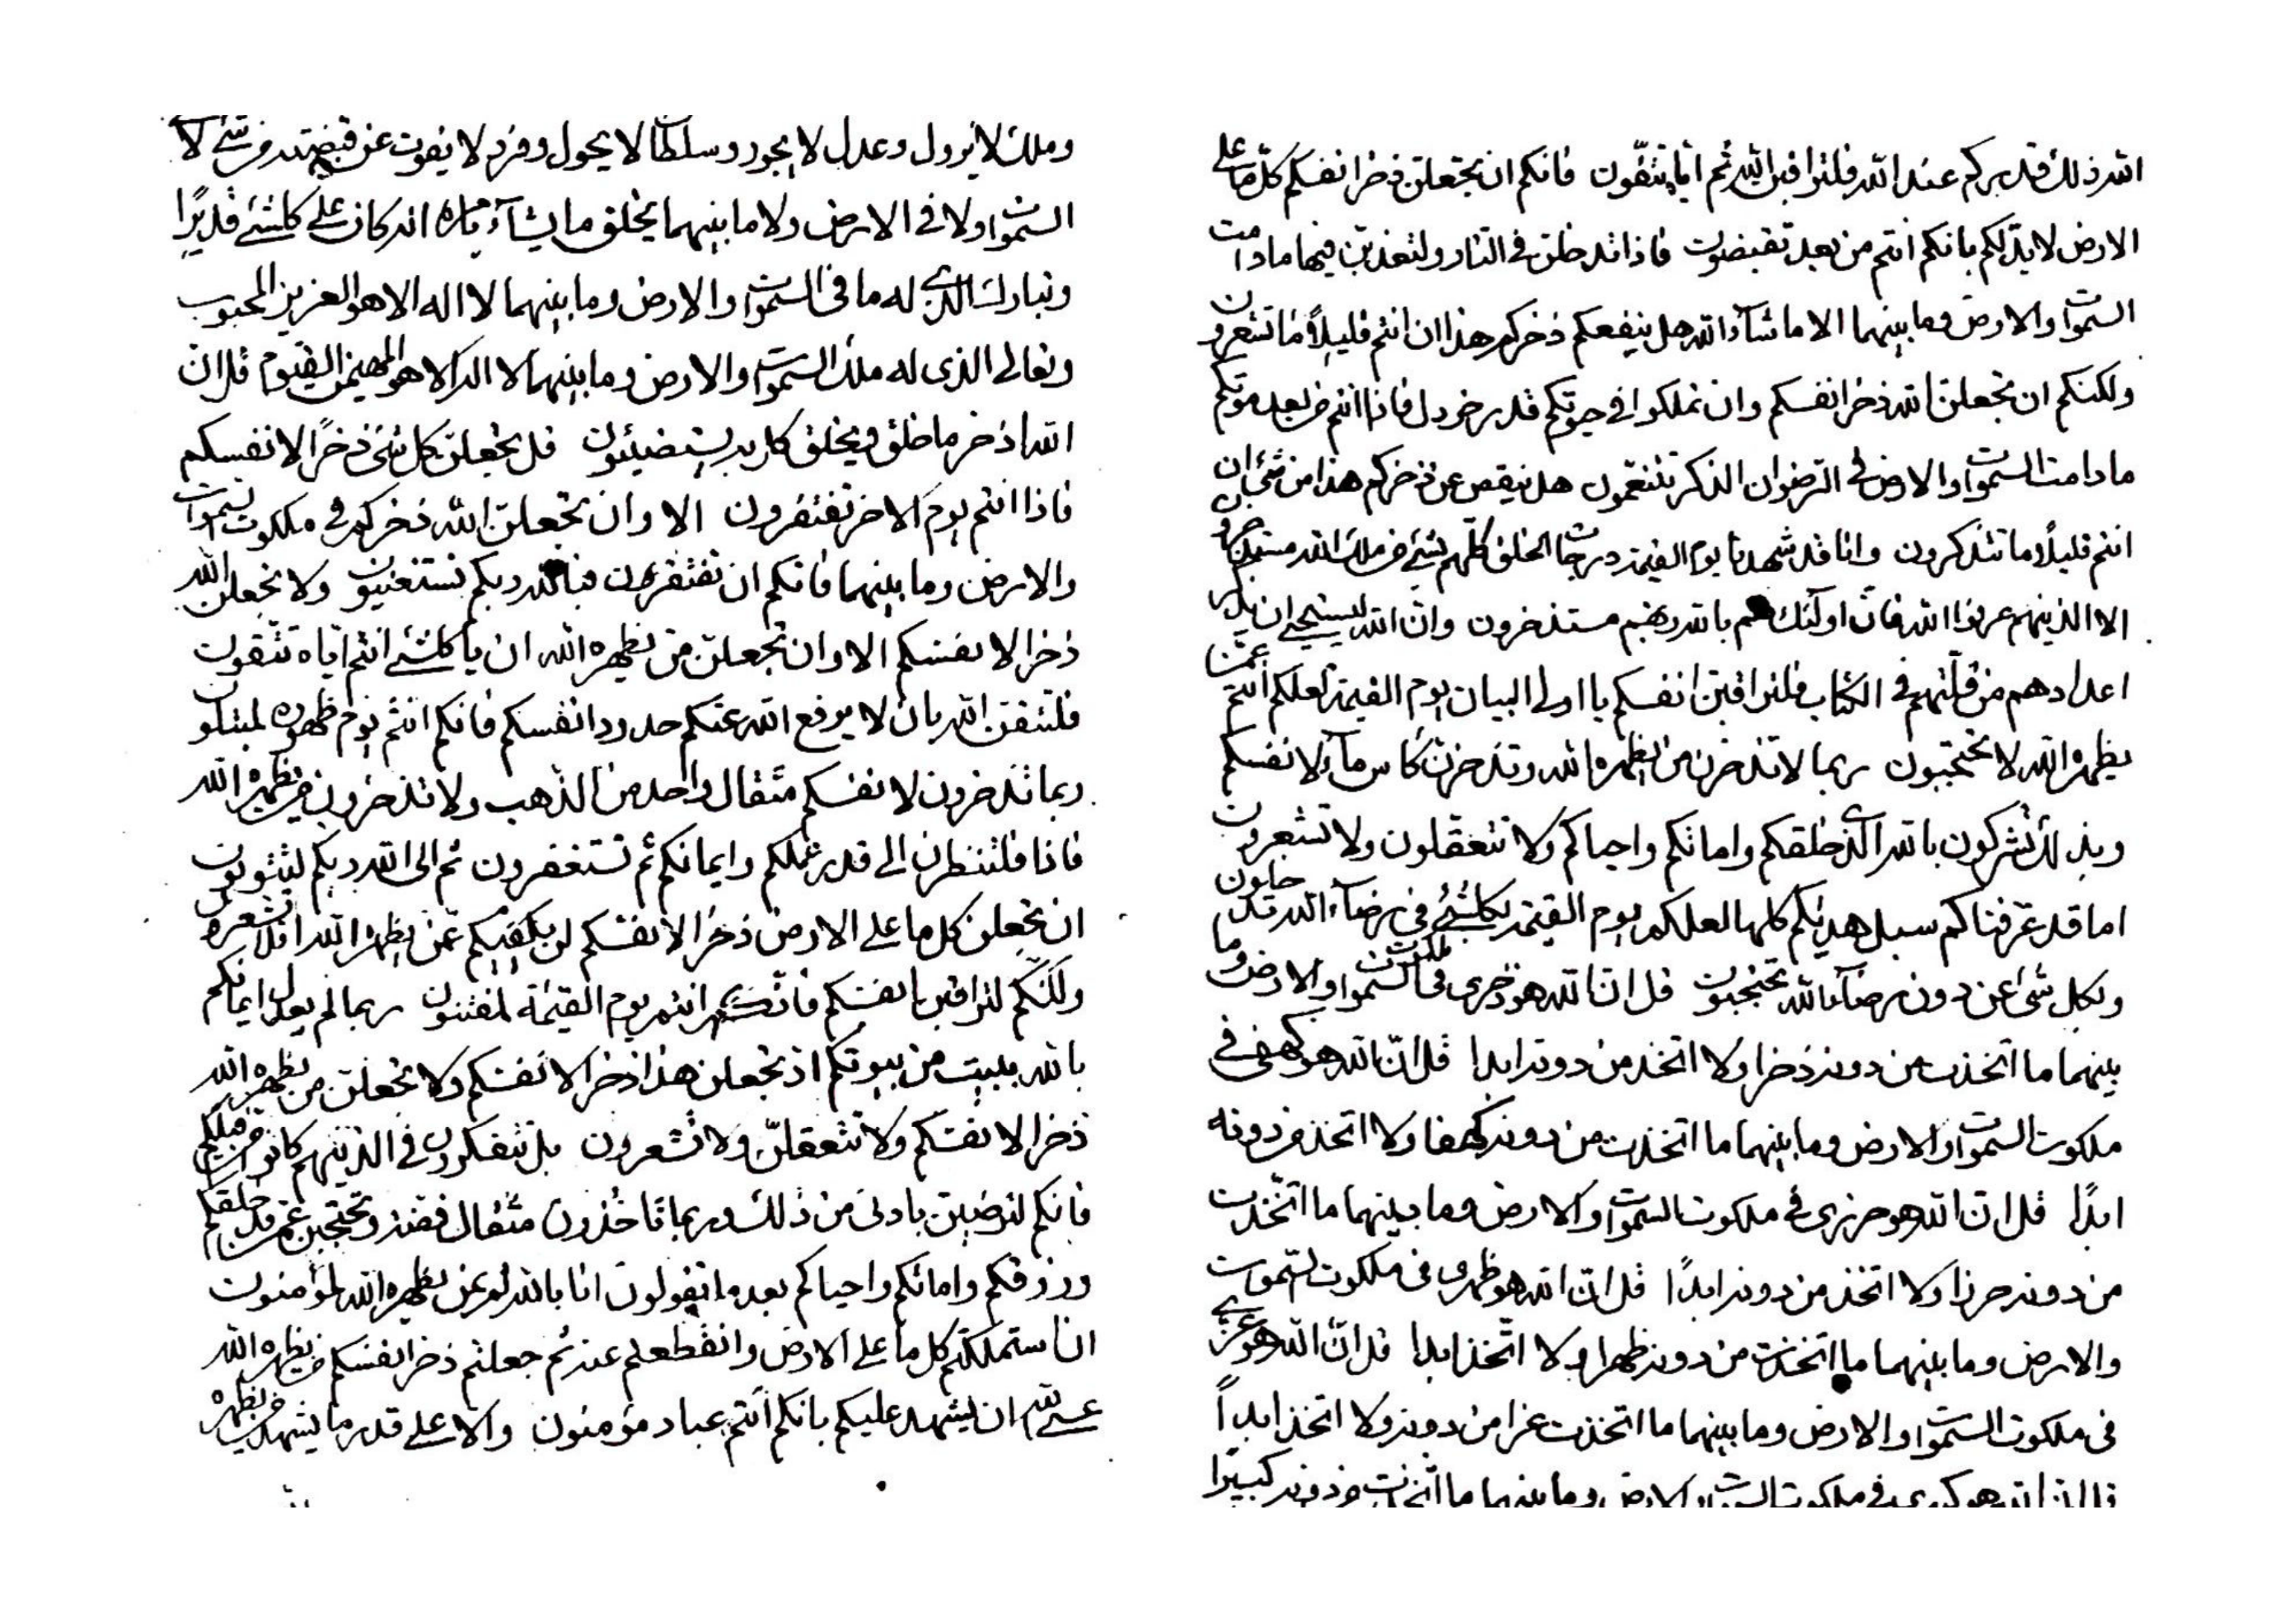 الله ذلك قدركم عند الله فلتراقبن الله ثم اياه تتقون فانكم ان تجعلن ذخر انفسكم كل ما على
الارض لابد لكم بانكم انتم من بعد تقبضون فاذا تدخلن في النار ولتعذبن فيها ما دامت
السموات والارض وما بينهما الا ما شاء الله هل ينفعكم ذخركم هذا ان انتم قليلا ما تشعرون
ولكنكم ان تجعلن الله ذخر انفسكم وان تملكوا في حيوتكم قدر خردل فاذا انتم من بعد موتكم
ما دامت السموات والارض في الرضوان الذكر تتنعمون هل ينقص عن ذخركم هذا من شئ ان
انتم قليلا ما تتذكرون وانا قد شهدنا يوم القيمة درجات الخلق كلهم بشئ من ملك الله مستذخرون
الا الذينهم عرفوا الله فان اولئك هم بالله ربهم مستذخرون وان الله ليستحيي ان يذكر
اعدادهم من قلتهم في الكتاب فلتراقبن انفسكم يا اولى البيان يوم القيمة لعلكم انتم عمن
يظهره الله لا تحتجبون ربما لا تذخرن من يظهره الله وتذخرن كاس ماء لانفسكم
وبذلك تشركون بالله الذي خلقكم واماتكم واحياكم ولا تتعقلون ولا تشعرون
اما قد عرفناكم سبل هديكم كلها لعلكم يوم القيمة بكلشئ في رضاء الله تدخلون
وبكل شئ عن دون رضاء الله تحتجبون قل ان الله هو ذخري في ملكوت السموات والارض وما
بينهما ما اتخذت من دونه ذخرا ولا اتخذ من دونه ابدا قل ان الله هو كهفي في
ملكوت السموات والارض وما بينهما ما اتخذت من دونه كهفا ولا اتخذ من دونه
ابدا قل ان الله هو حرزي في ملكوت السموات والارض وما بينهما ما اتخذت
من دونه حرزا ولا اتخذ من دونه ابدا قل ان الله هو ظهري في ملكوت السموات
والارض وما بينهما ما اتخذت من دونه ظهرا ولا اتخذ ابدا قل ان الله هو عزي
في ملكوت السموات والارض وما بينهما ما اتخذت عزا من دونه ولا اتخذ ابدا
قل ان الله هو في ملكوت السموات والارض وما بينهما ما اتخذت من دونه كبيرا
وملك لا يزول وعدل لا يجور وسلطان لا يحول وفرد لا يفوت عن قبضته من شئ لا في
السموات ولا في الارض ولا ما بينهما يخلق ما يشاء بامره انه كان على كلشئ قديرا
وتبارك الذي له ما في السموات والارض وما بينهما لا اله الا هو العزيز المحبوب
وتعالى الذي له ملك السموات والارض وما بينهما لا اله الا هو المهيمن القيوم قل ان
الله اذخر ما خلق ويخلق كل به يستضيئون قل تجعلن كل شئ ذخرا لانفسكم
فاذا انتم يوم الاخر تفتقرون الا وان تجعلن الله ذخركم في ملكوت السموات
والارض وما بينهما فانكم ان تفتقرون فبالله ربكم تستغنيون ولا تجعلن الله
ذخرا لانفسكم الا وان تجعلن من يظهره الله ان يا كلشئ انتم اياه تتقون
فلتتقن الله بان لا يرفع الله عنكم حدود انفسكم فانكم انتم يوم ظهوره لمبتلون
ربما تذخرون لانفسكم مثقال واحد من الذهب ولا تذخرون من يظهره الله
فاذا فلتنظرن الى قدر عملكم وايمانكم ثم تستغفرون ثم الى الله ربكم لتتوبون
ان تجعلن كل ما على الارض ذخرا لانفسكم لن يكفيكم عن من يظهره الله افلا تشعرون
ولكنكم لتراقبن انفسكم فانكم انتم يوم القيمة لمفتنون ربما لم يعدل ايمانكم
بالله ببيت من بيوتكم اذ تجعلن هذا ذخرا لانفسكم ولا تجعلن من يظهره الله
ذخرا لانفسكم ولا تتعقلن ولا تشعرون بل تتفكرون في الذينهم كانوا من قبلكم
فانكم لترضين بادنى من ذلك وربما تاخذون مثقال فضة وتحتجبن عمن قد خلقكم
ورزقكم واماتكم واحياكم بعد ما تقولون انا بالله ثم بمن يظهره الله لمؤمنون
ان استملكتم كل ما على الارض وانقطعتم عنه ثم جعلتم ذخر انفسكم من يظهره الله
عسى الله ان يشهد عليكم بانكم انتم عباد مؤمنون والا على قدر ما يشهد من يظهره